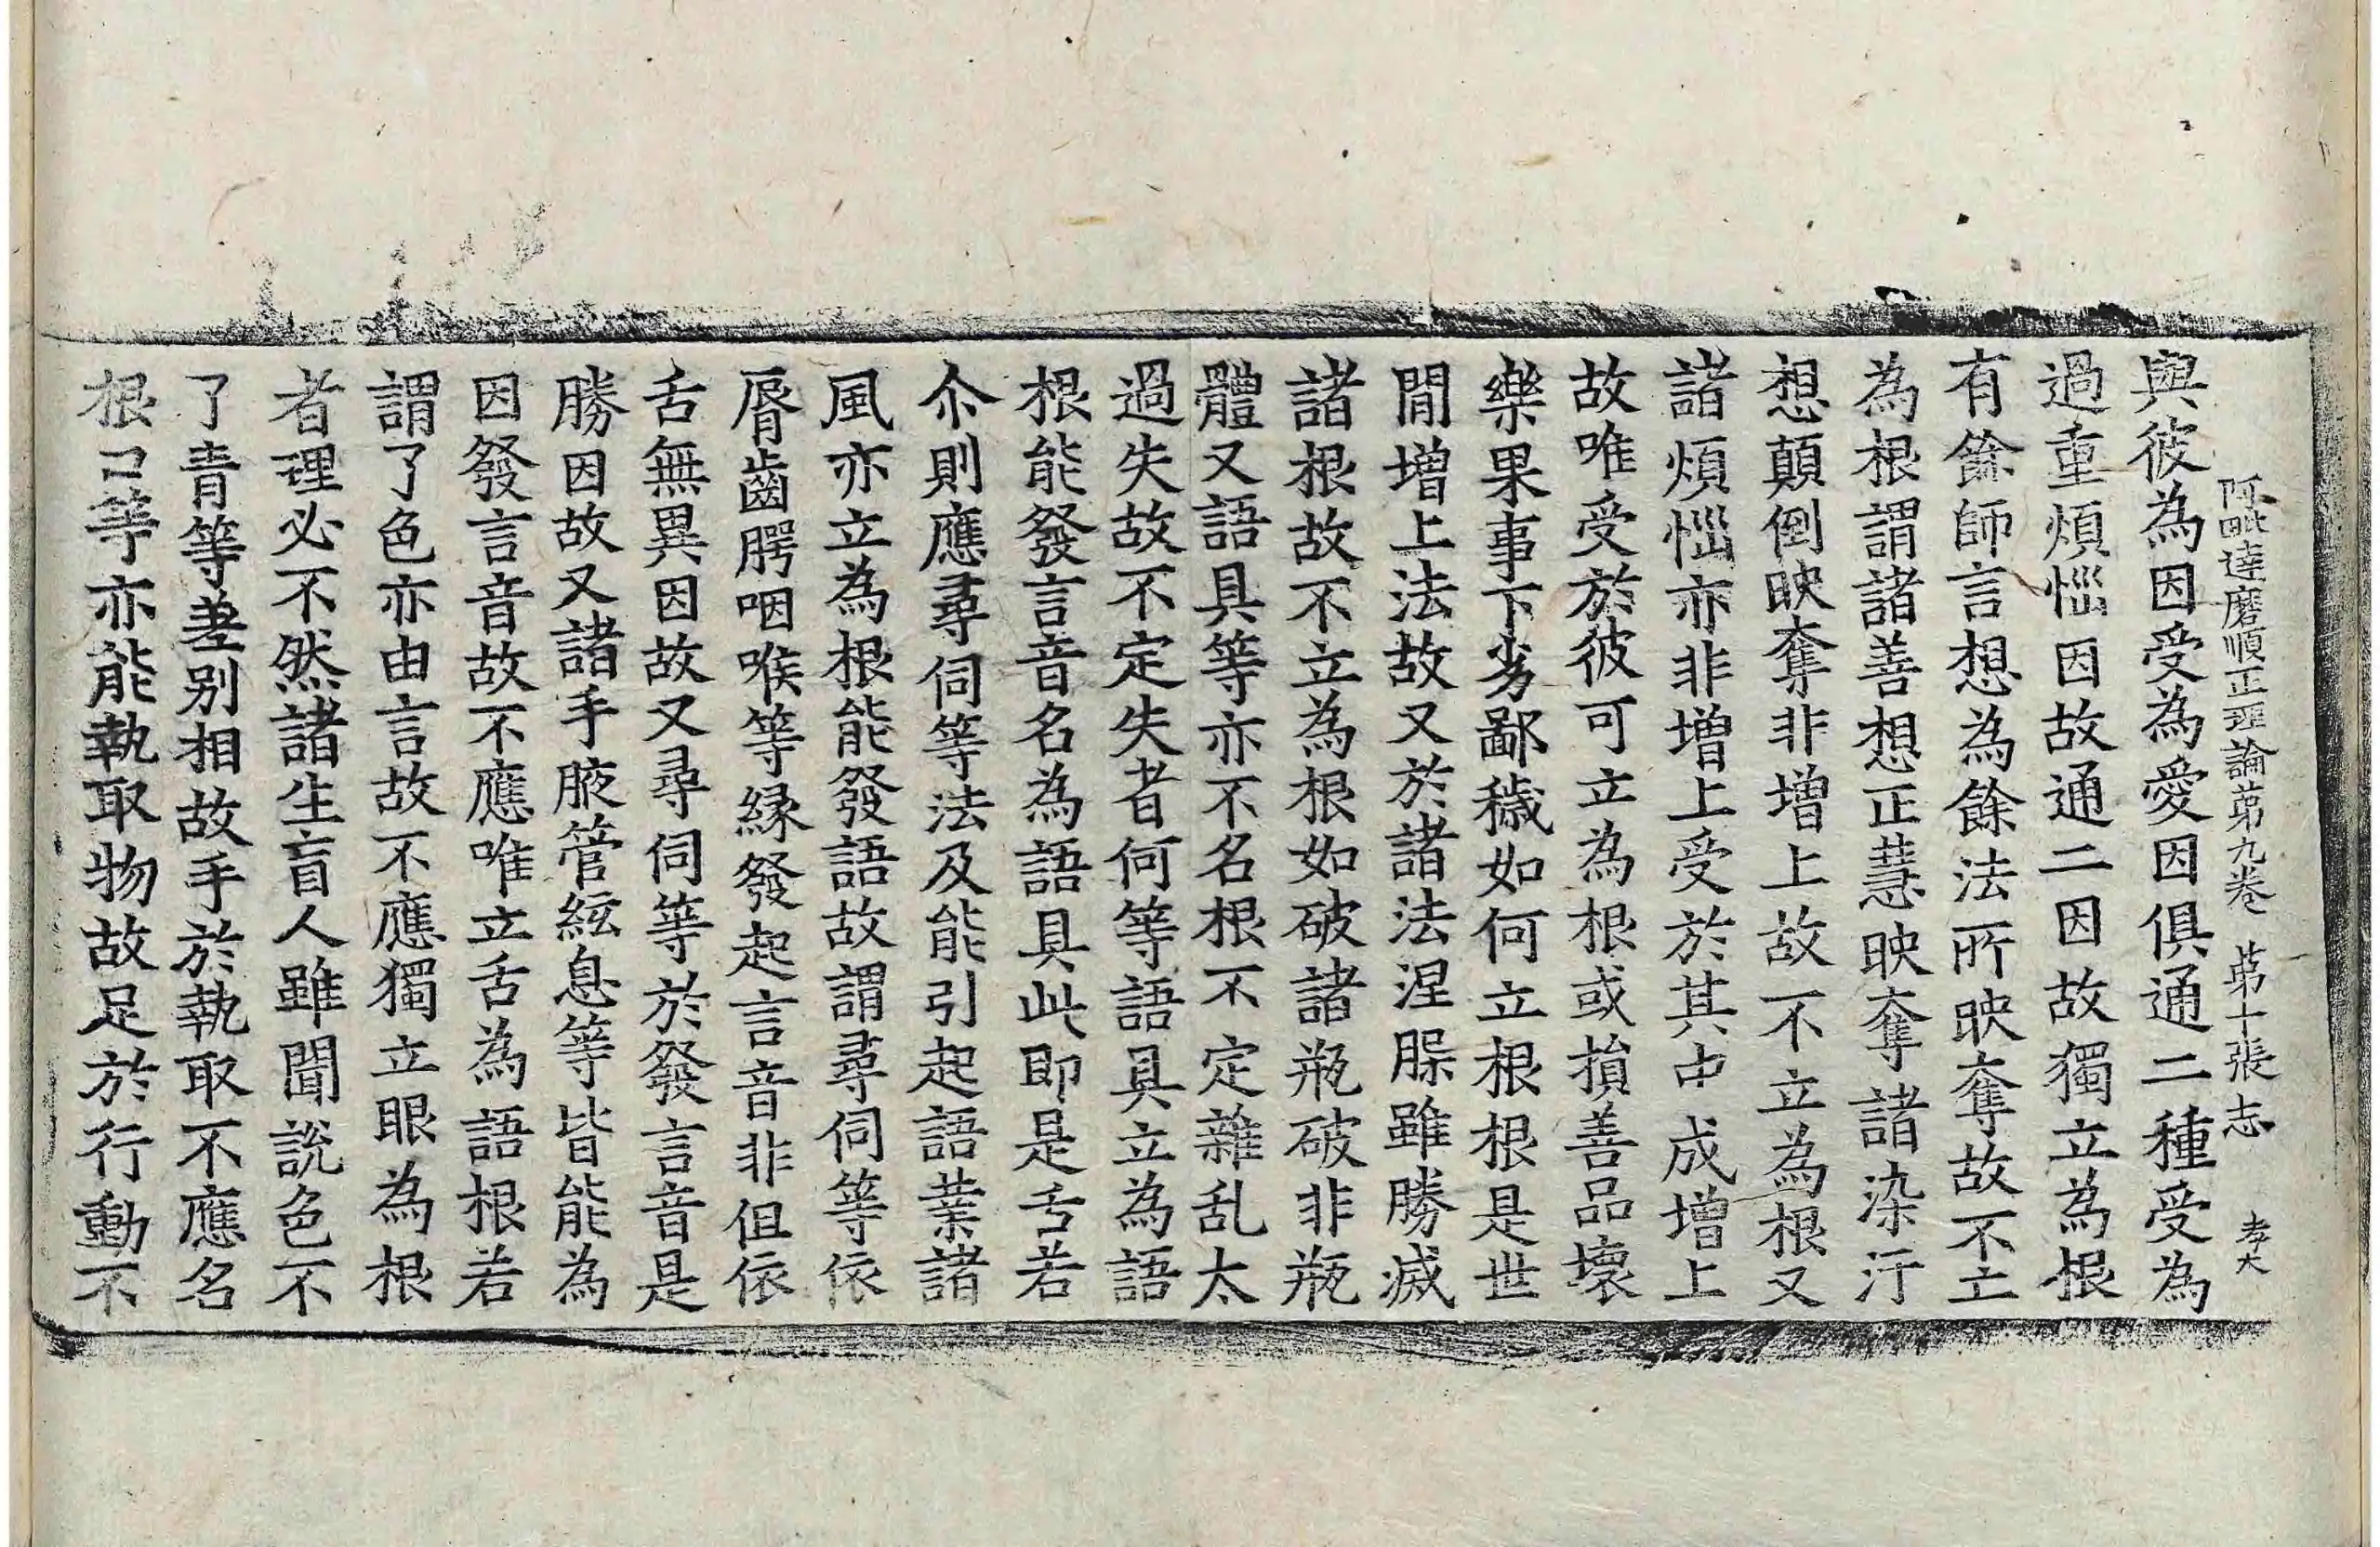 阿毗達磨順正理論第九卷 第十張 志 孝大
與彼為因受為愛因俱通二種受為
過重煩惱因故通二因故獨立為根
有餘師言想為餘法所映奪故不立
為根謂諸善想正慧映奪諸染汙
想顛倒映奪非增上故不立為根又
諸煩惱亦非增上受於其中成增上
故唯受於彼可立為根或損善品壞
樂果事下劣鄙穢如何立根根是世
間增上法故又於諸法涅槃雖勝滅
諸根故不立為根如破諸瓶破非瓶
體又語具等亦不名根不定雜乱太
過失故不定失者何等語具立為語
根能發言音名為語具此即是舌若
尒則應尋伺等法及能引起語業諸
風亦立為根能發語故謂尋伺等依
脣齒腭咽喉等緣發起言音非但依
舌無異因故又尋伺等於發言音是
勝因故又諸手腋管絃息等皆能為
因發言音故不應唯立舌為語根若
謂了色亦由言故不應獨立眼為根
者理必不然諸生盲人雖聞說色不
了青等差別相故手於執取不應名
根口等亦能執取物故足於行動不